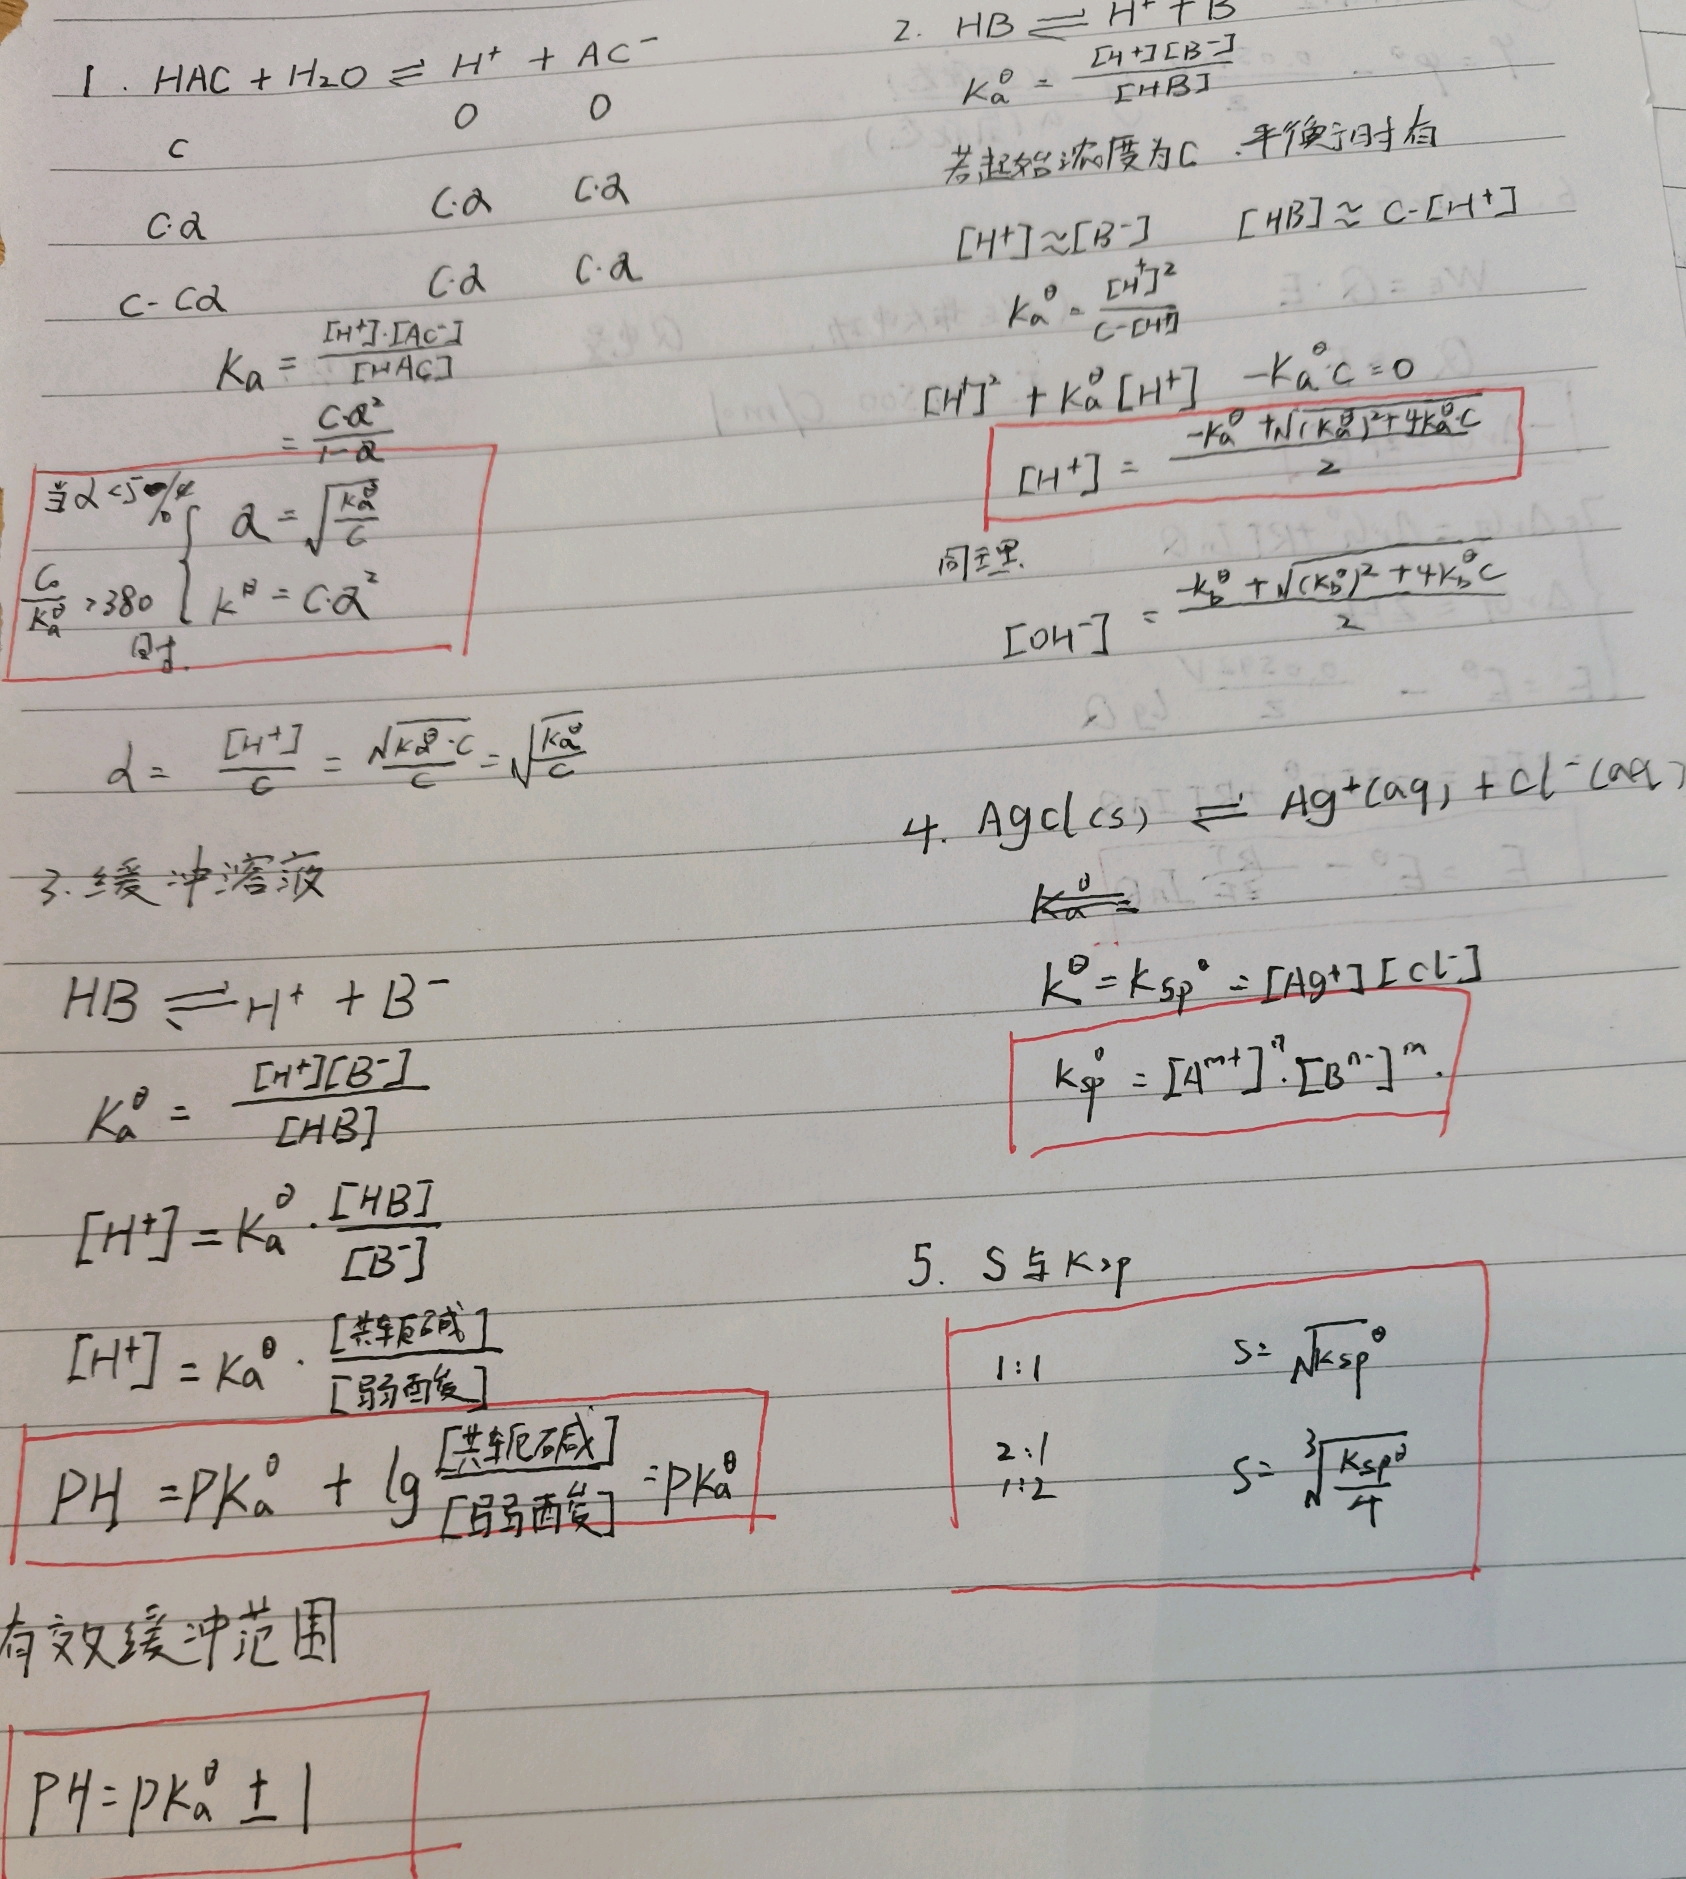 1. HAC + H₂O ⇌ H⁺ + AC⁻
C 0 0
C·α C·α C·α
C-Cα C·α C·α
Ka = [H⁺]·[AC⁻] / [HAC]
= C·α² / 1-α
当α<5% α = √(Ka^θ / C)
C₀ / Ka^θ >380 K^θ = C·α²
时.
α = [H⁺] / C = √(Ka^θ·C) / C = √(Ka^θ / C)
2. HB ⇌ H⁺ + B
Ka^θ = [H⁺][B⁻] / [HB]
若起始浓度为C,平衡时有
[H⁺]≈[B⁻] [HB]≈C-[H⁺]
Ka^θ = [H⁺]² / C-[H⁺]
[H⁺]² + Ka^θ[H⁺] -Ka^θC=0
[H⁺] = -Ka^θ+√((Ka^θ)²+4Ka^θ·C) / 2
同理.
[OH⁻] = -Kb^θ+√((Kb^θ)²+4Kb^θC) / 2
3.缓冲溶液
HB ⇌ H⁺ + B⁻
Ka^θ = [H⁺][B⁻] / [HB]
[H⁺] = Ka^θ · [HB] / [B⁻]
[H⁺] = Ka^θ · [共轭碱] / [弱酸]
PH = PKa^θ + lg [共轭碱] / [弱酸] = PKa^θ
有效缓冲范围
PH = PKa^θ ± 1
4. AgCl(s) ⇌ Ag⁺(aq) + Cl⁻(aq)
Ka^θ =
K^θ = Ksp^θ = [Ag⁺][Cl⁻]
Ksp^θ = [A^m+]^n·[B^n-]^m.
5. S与Ksp
1:1 S= √Ksp^θ
2:1
1:2 S= ³√(Ksp^θ / 4)